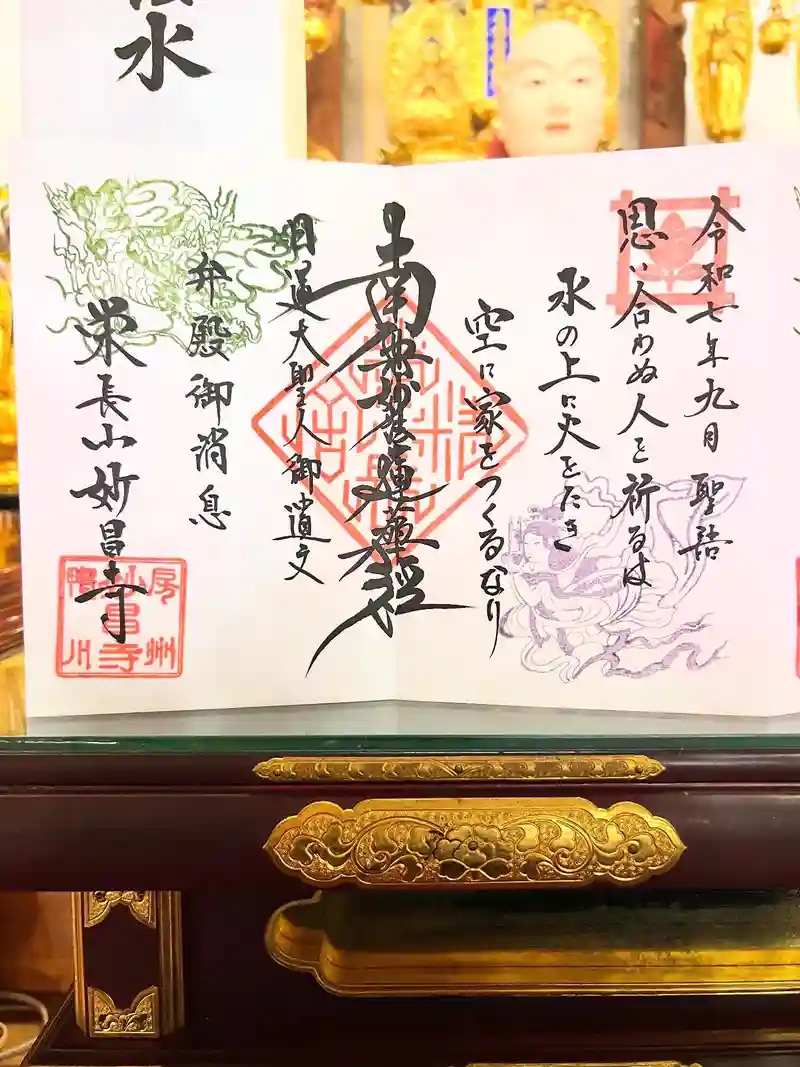 水
令和七年九月 聖語
思い合わぬ人を祈るは
水の上に火をたき
空に家をつくるなり
南無妙法蓮華経
日蓮大聖人御遺文
弁殿御消息
栄長山妙昌寺
房州
妙昌寺
鴨川